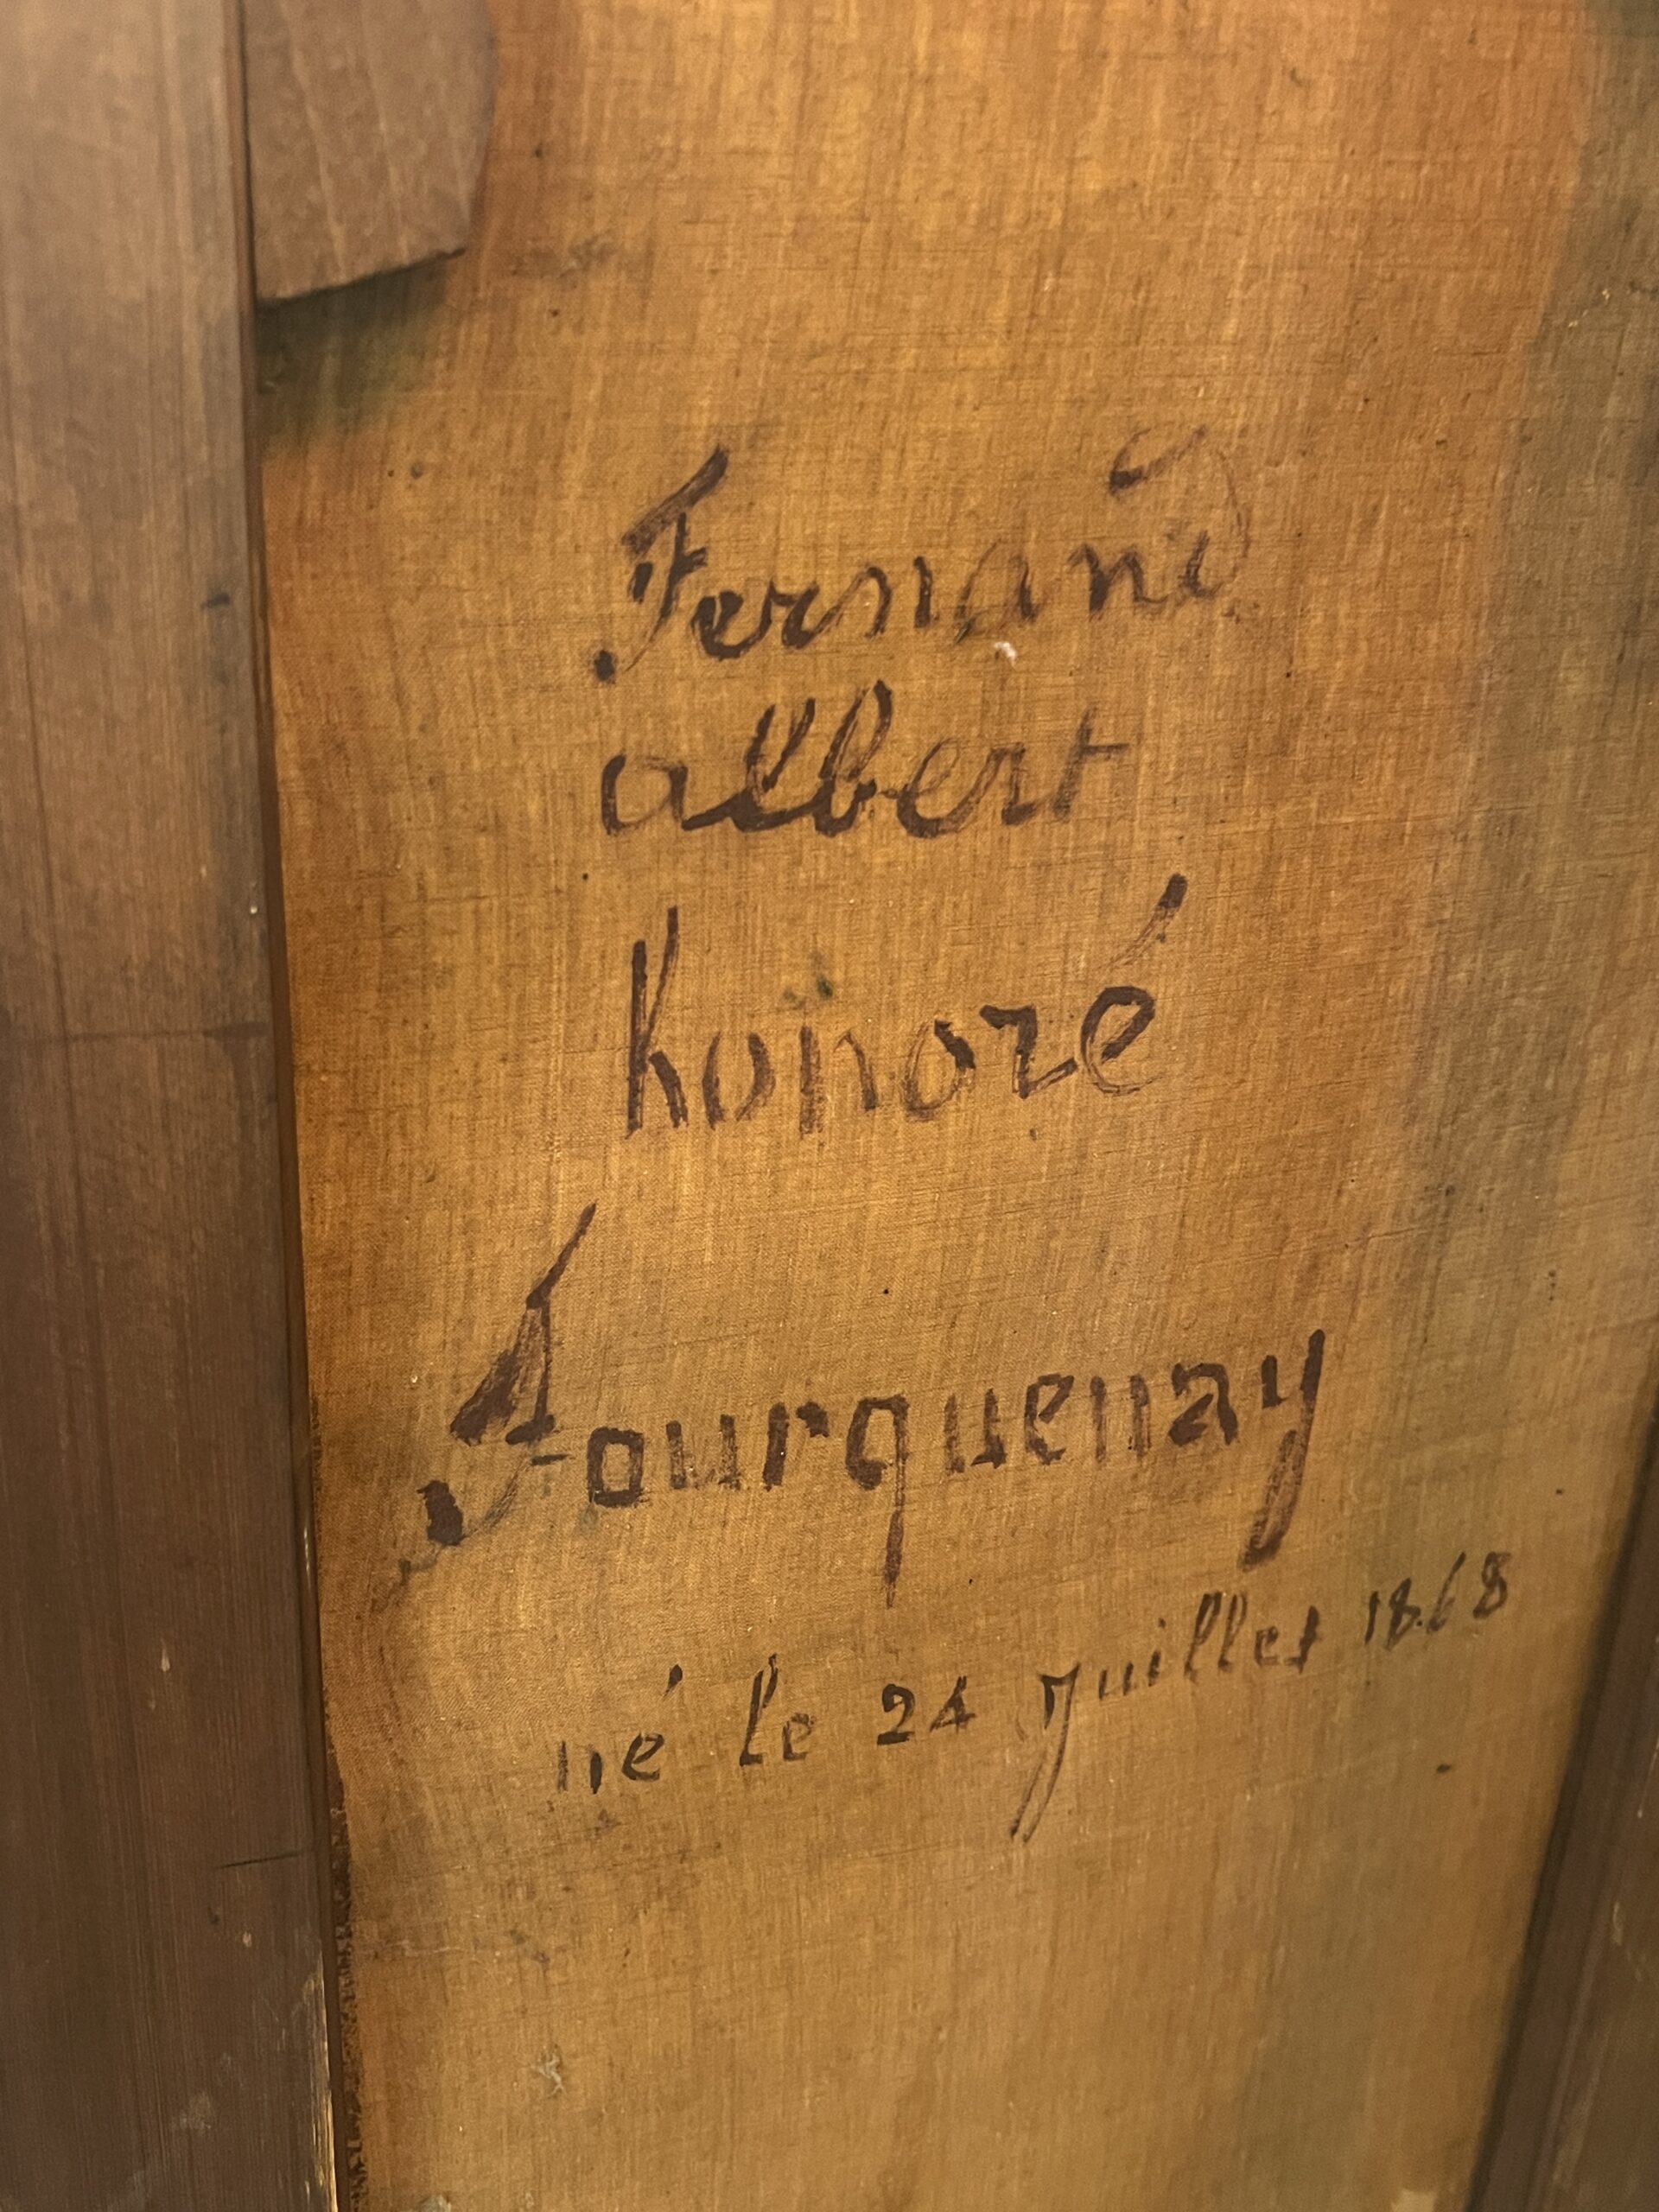 Fernand
albert
honoré
Fourquenay
né le 24 Juillet 1868